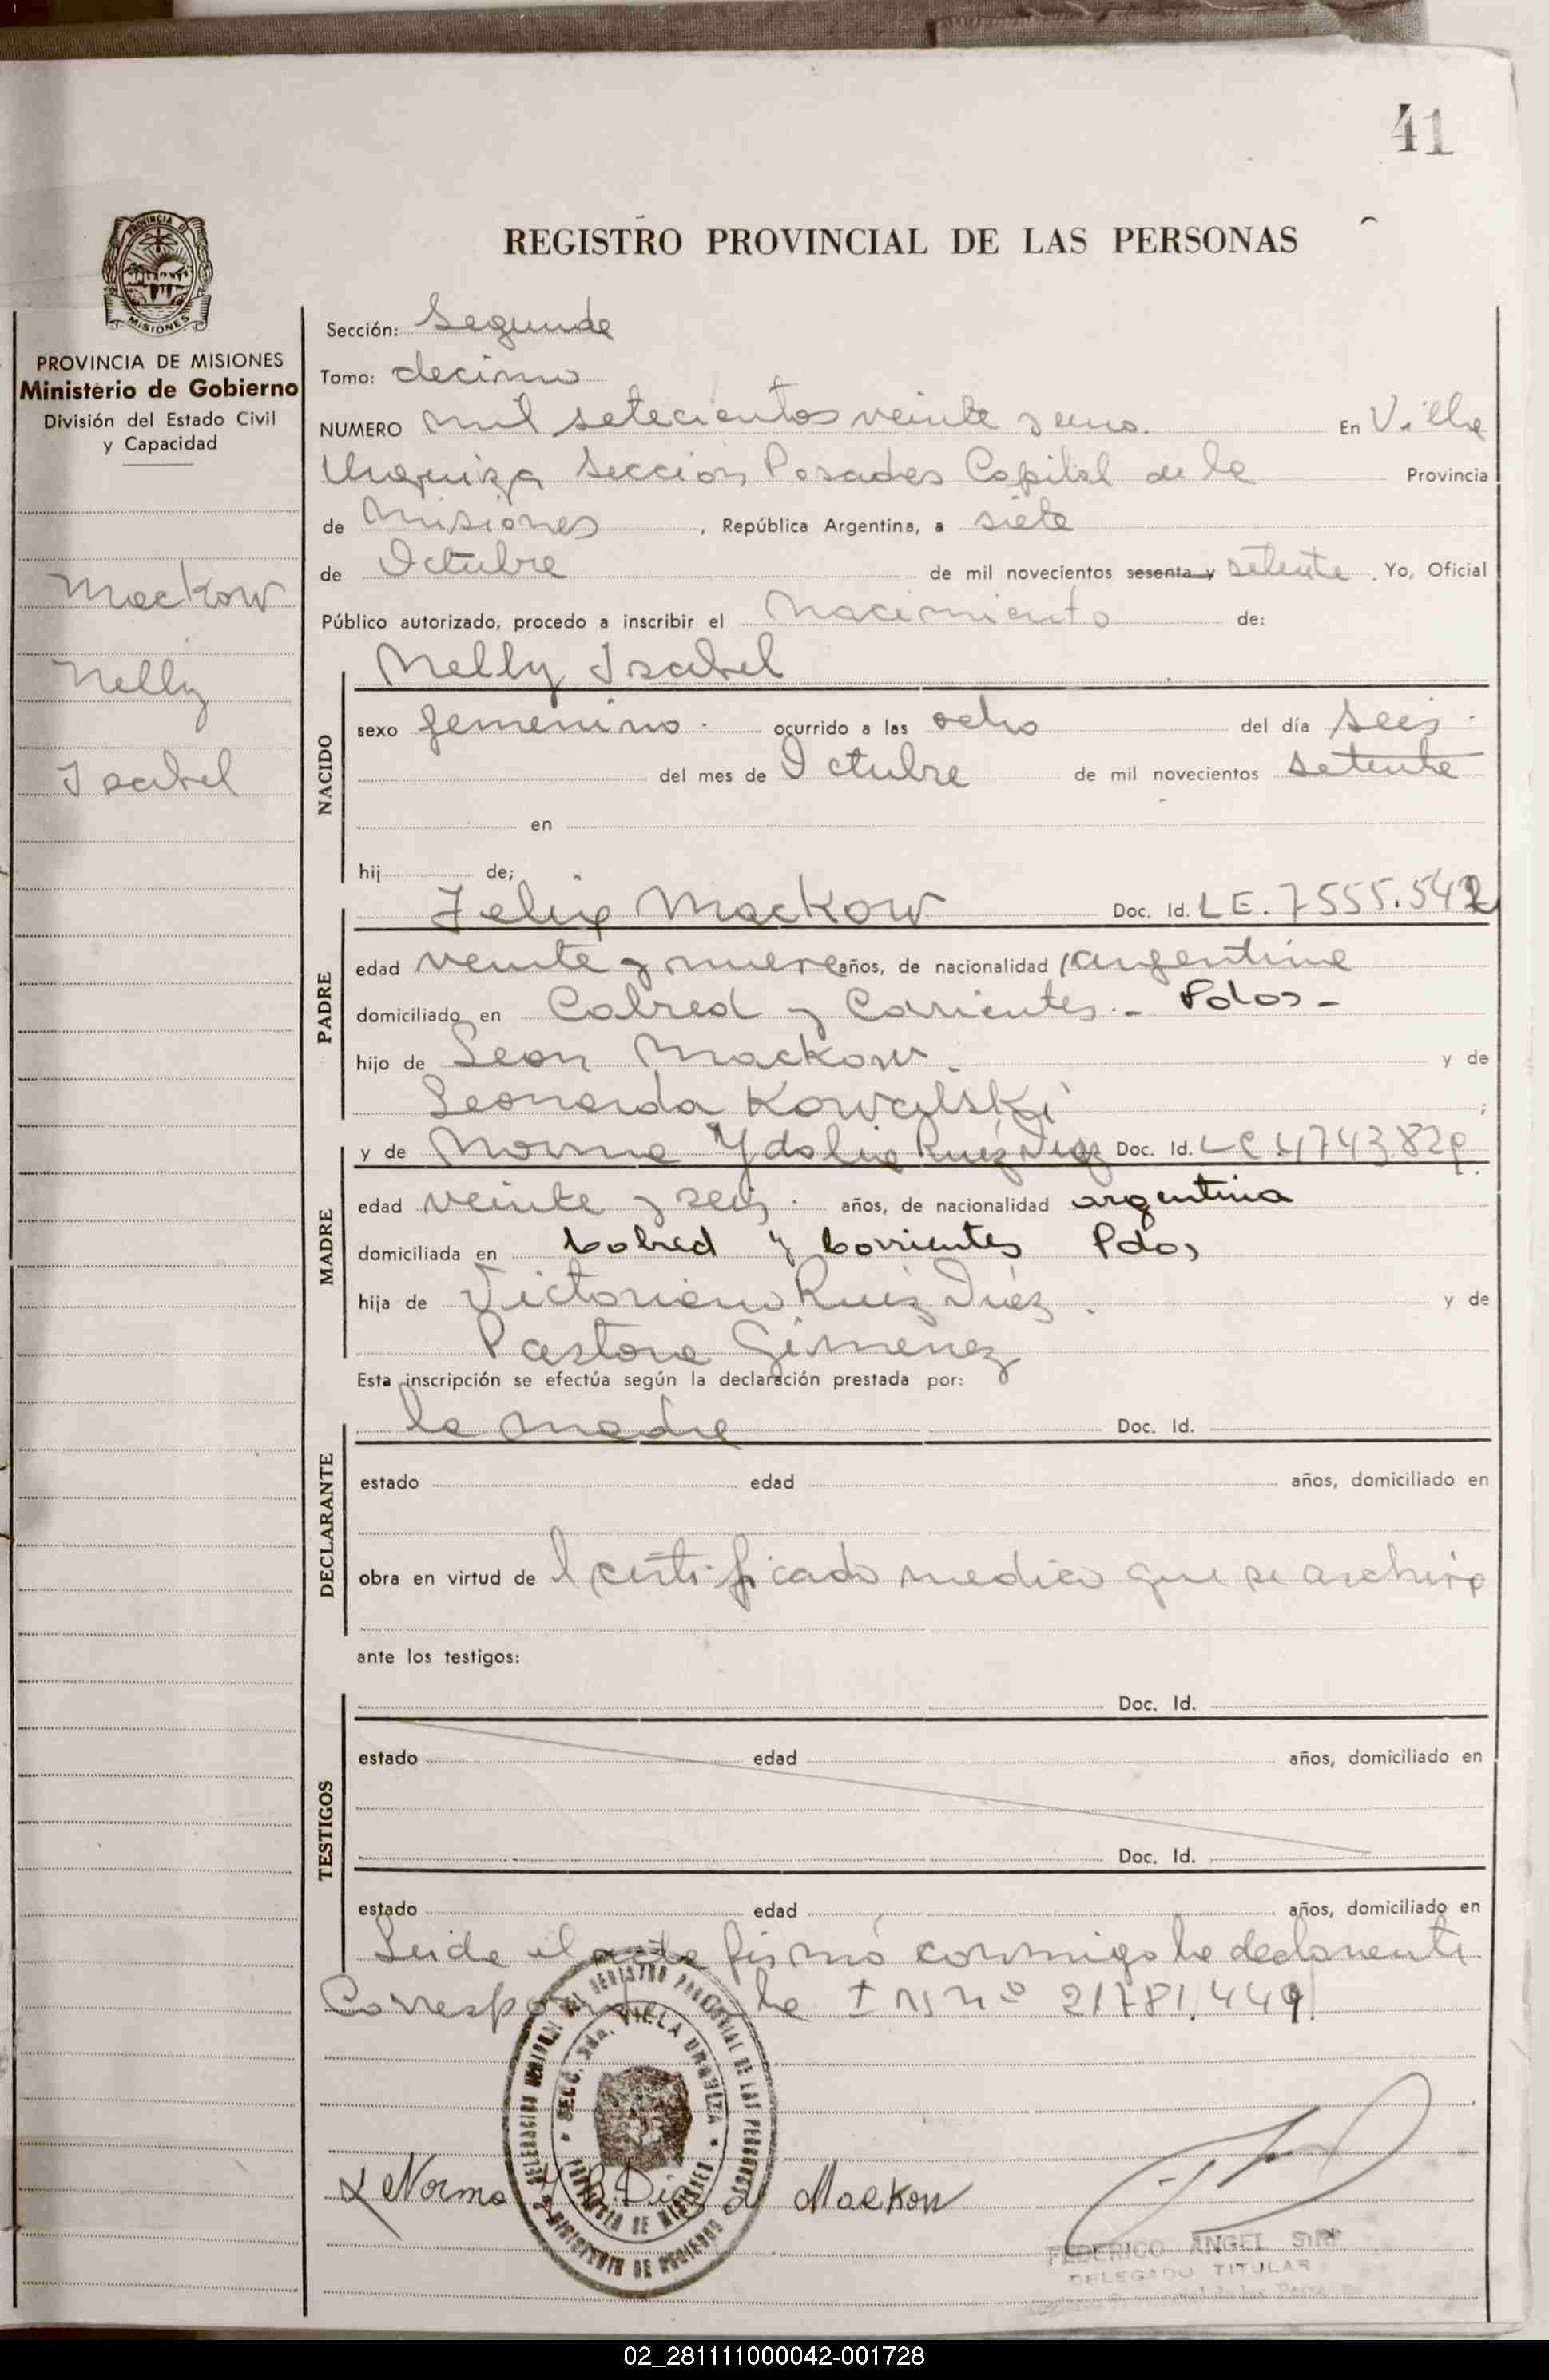 41
REGISTRO PROVINCIAL DE LAS PERSONAS
PROVINCIA DE MISIONES
Ministerio de Gobierno
División del Estado Civil
y Capacidad
Mackow
Nelly
Isabel
Sección: Segunda
Tomo: decimo
NUMERO mil setecientos veinte y uno. En Villa
Urquiza Sección Posadas Capital de la Provincia
de Misiones, República Argentina, a siete
de Octubre de mil novecientos sesenta y setenta. Yo, Oficial
Público autorizado, procedo a inscribir el Nacimiento de:
Nelly Isabel
NACIDO
sexo femenino. ocurrido a las ocho del día seis.
del mes de Octubre de mil novecientos setenta
en
hij de;
PADRE
Felix Mackow Doc. Id. LE. 7555.542
edad veinte y nueve años, de nacionalidad argentina
domiciliado en Cabred y Corrientes.- Pdas-
hijo de Leon Mackow. y de
Leonarda Kowalski ;
MADRE
y de Norma Ydalia Ruiz Diaz Doc. Id. LC 4743.829.
edad veinte y seis. años, de nacionalidad argentina
domiciliada en Cabred y Corrientes Pdas
hija de Victoriano Ruiz Díaz. y de
Pastora Gimenez
Esta inscripción se efectúa según la declaración prestada por:
DECLARANTE
la madre Doc. Id.
estado edad años, domiciliado en
obra en virtud de l certificado medico que se archiva
ante los testigos:
TESTIGOS
Doc. Id.
estado edad años, domiciliado en
Doc. Id.
estado edad años, domiciliado en
Leida el acta firmó conmigo la declarente
Corresponde la nº 21781.449
SECC. 2da. VILLA URQUIZA
PROVINCIA DE MISIONES
MINISTERIO DE GOBIERNO
Norma Y R. Diaz de Mackow
FEDERICO ANGEL
DELEGADO TITULAR
02_281111000042-001728